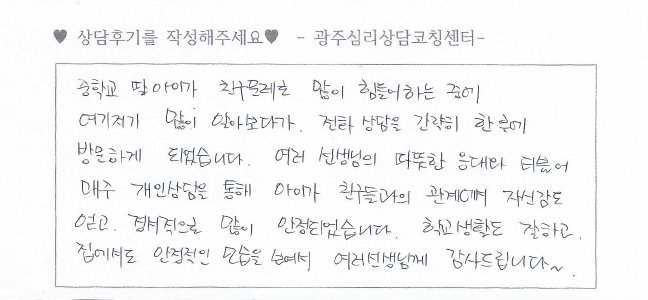 ♥ 상담후기를 작성해주세요♥ - 광주심리상담코칭센터-
중학교 딸아이가 친구문제로 많이 힘들어하는 중에
여기저기 많이 알아보다가. 전화 상담을 간략히 한 후에
방문하게 되었습니다. 여러 선생님의 따뜻한 응대와 더불어
매주 개인상담을 통해 아이가 친구들과의 관계에서 자신감도
얻고. 정서적으로 많이 안정되었습니다. 학교생활도 잘하고.
집에서도 안정적인 모습을 보여서 여러선생님께 감사드립니다~.